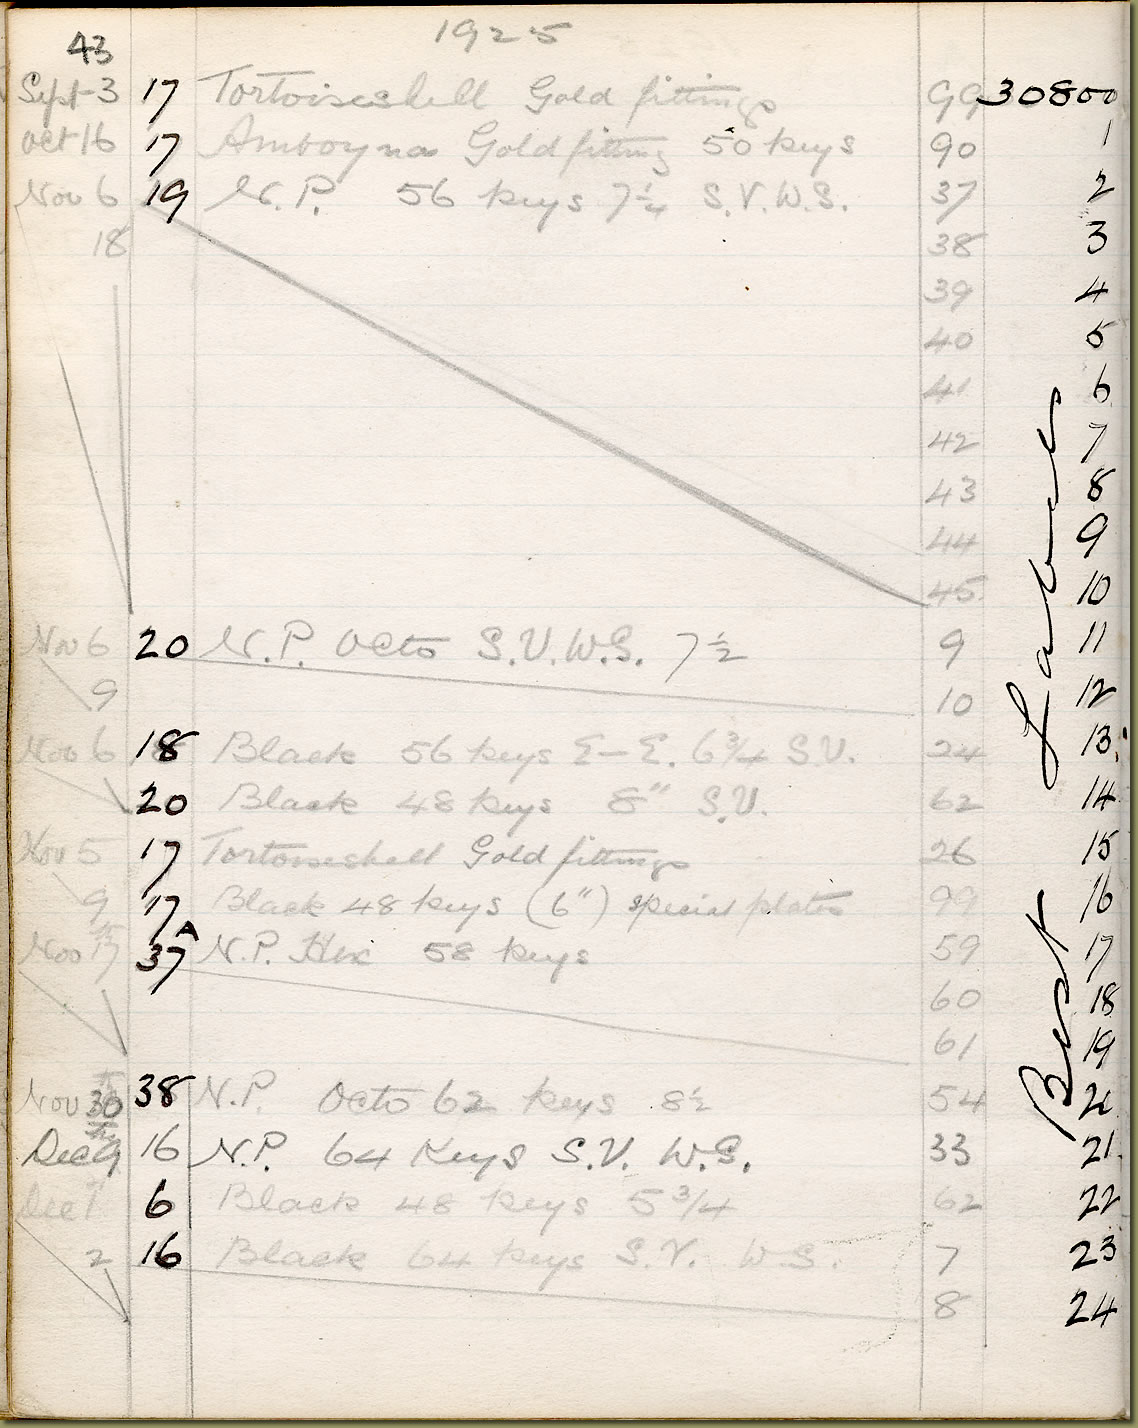 43 1925
Sept 3 17 Tortoiseshell Gold fittings 99 30800
Oct 16 17 Amboyna Gold fitting 50 keys 90 1
Nov 6 19 N.P. 56 keys 7½ S.V.W.S. 37 2
18 38 3
39 4
40 5
41 6
42 7
43 8
44 9
45 10
Nov 6 20 N.P. Octo S.V.W.S. 7½ 9 11
9 10 12
Nov 6 18 Black 56 keys E–E. 6¾ S.V. 24 13
20 Black 48 keys 8" S.V. 62 14
Nov 5 17 Tortoiseshell Gold fittings 26 15
9 17 Black 48 keys (6") special plates 99 16
Nov 17 37A N.P. Hex 58 keys 59 17
60 18
61 19
Nov 30 38 N.P. Octo 62 keys 8½ 54 20
Dec 9 16 N.P. 64 Keys S.V. W.S. 33 21
Dec 1st 6 Black 48 keys 5¾ 62 22
2 16 Black 64 keys S.V. W.S. 7 23
8 24
Best